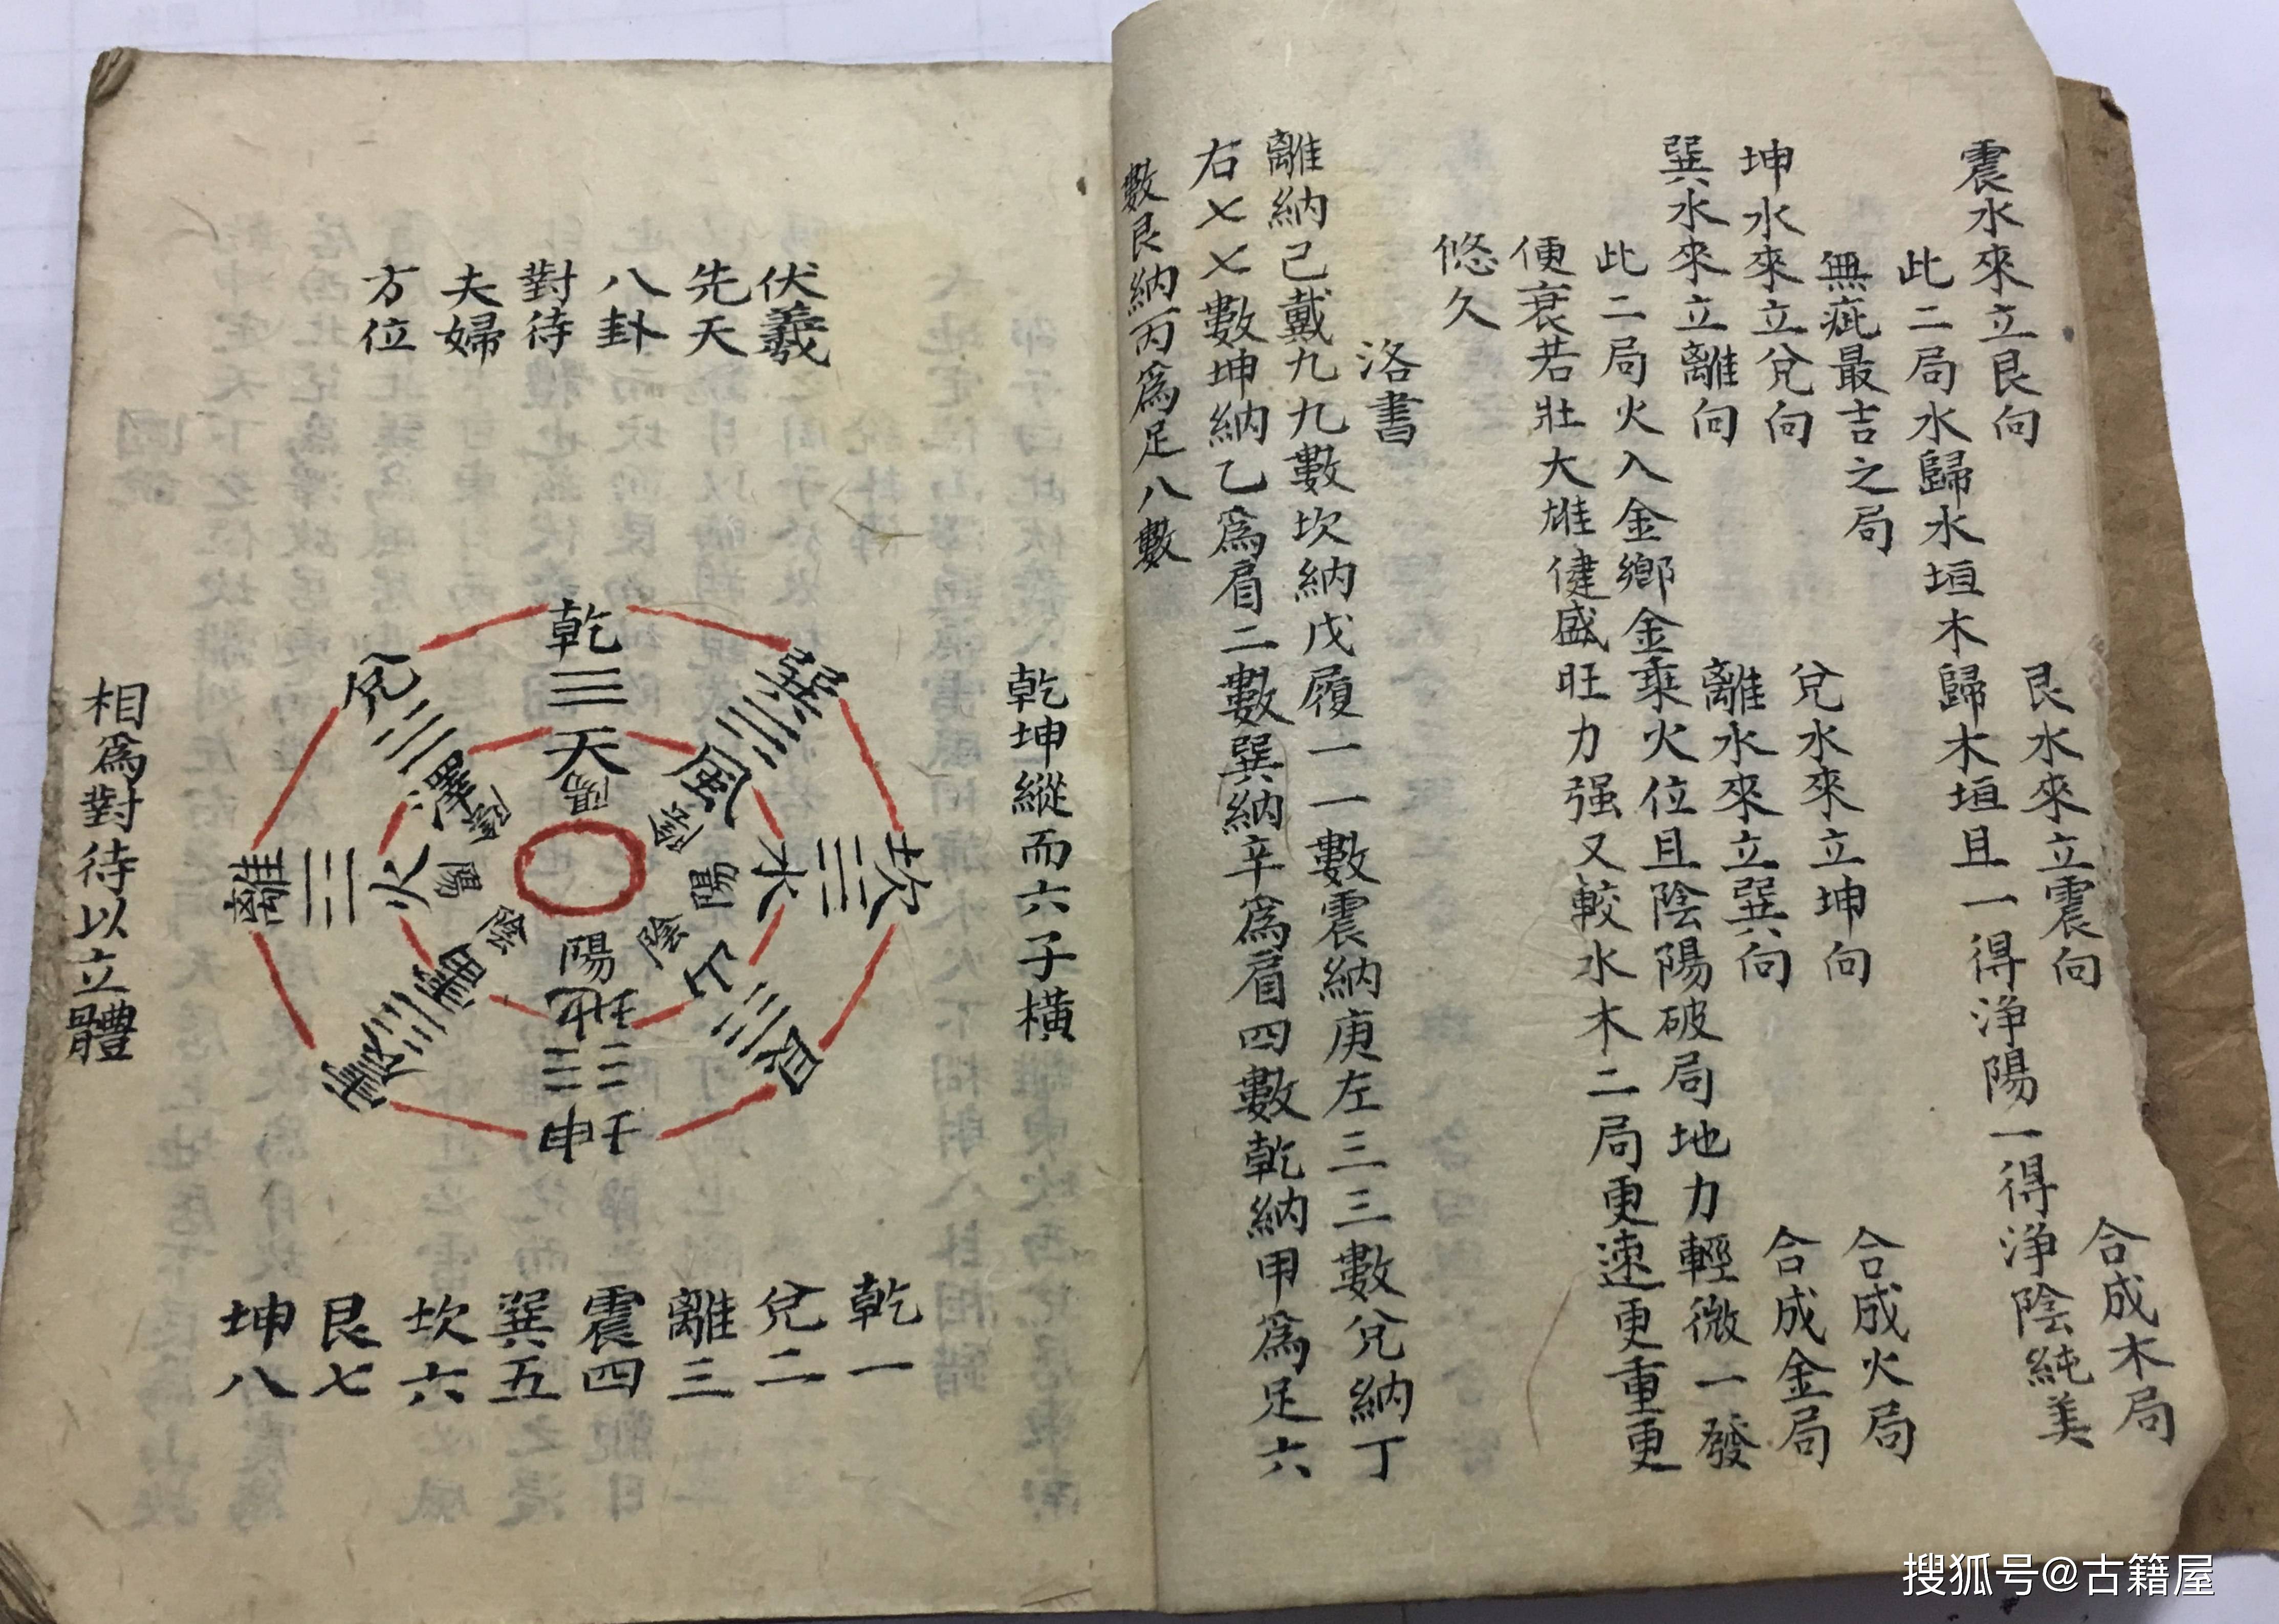 震水來立艮向　艮水來立震向　合成木局
此二局水歸水垣木歸木垣且一得淨陽一得淨陰純美
無疵最吉之局
坤水來立兌向　兌水來立坤向　合成火局
巽水來立離向　離水來立巽向　合成金局
此二局火入金鄉金乘火位且陰陽破局地力輕微一發
便衰若壯大雄健盛旺力强又較水木二局更速更重更
悠久
洛書
離納己戴九九數坎納戊履一一數震納庚左三三數兌納丁
右〤〤數坤納乙爲肩二數巽納辛爲肩四數乾納甲爲足六
數艮納丙爲足八數
乾坤縱而六子橫
伏羲
先天
八卦
對待
夫婦
方位
乾
☰
天
陽
巽
☴
風
陰
坎
☵
水
陽
艮
☶
山
陰
坤
☷
地
陽
震
☳
雷
陰
離
☲
火
陽
兌
☱
澤
陰
乾一
兌二
離三
震四
巽五
坎六
艮七
坤八
相爲對待以立體
搜狐号@古籍屋